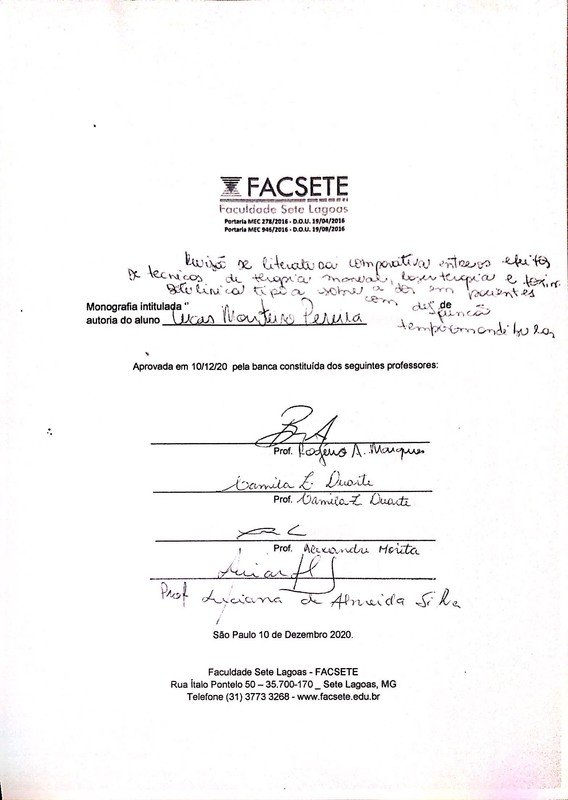 FACSETE
Faculdade Sete Lagoas
Portaria MEC 278/2016 - D.O.U. 19/04/2016
Portaria MEC 946/2016 - D.O.U. 19/08/2016
Revisão de literatura comparativa entre os efeitos
de tecnicas de terapia manual, laserterapia e toxina
botulinica tipo a sobre a dor em pacientes
com disfunção
temporomandibular
Monografia intitulada " de
autoria do aluno Lucas Monteiro Pereira
Aprovada em 10/12/20 pela banca constituída dos seguintes professores:
Prof. Rogério A. Marques
Camila L. Duarte
Prof. Camila L Duarte
Prof. Alexandre Morita
Prof Luciana de Almeida Silva
São Paulo 10 de Dezembro 2020.
Faculdade Sete Lagoas - FACSETE
Rua Ítalo Pontelo 50 – 35.700-170 _ Sete Lagoas, MG
Telefone (31) 3773 3268 - www.facsete.edu.br